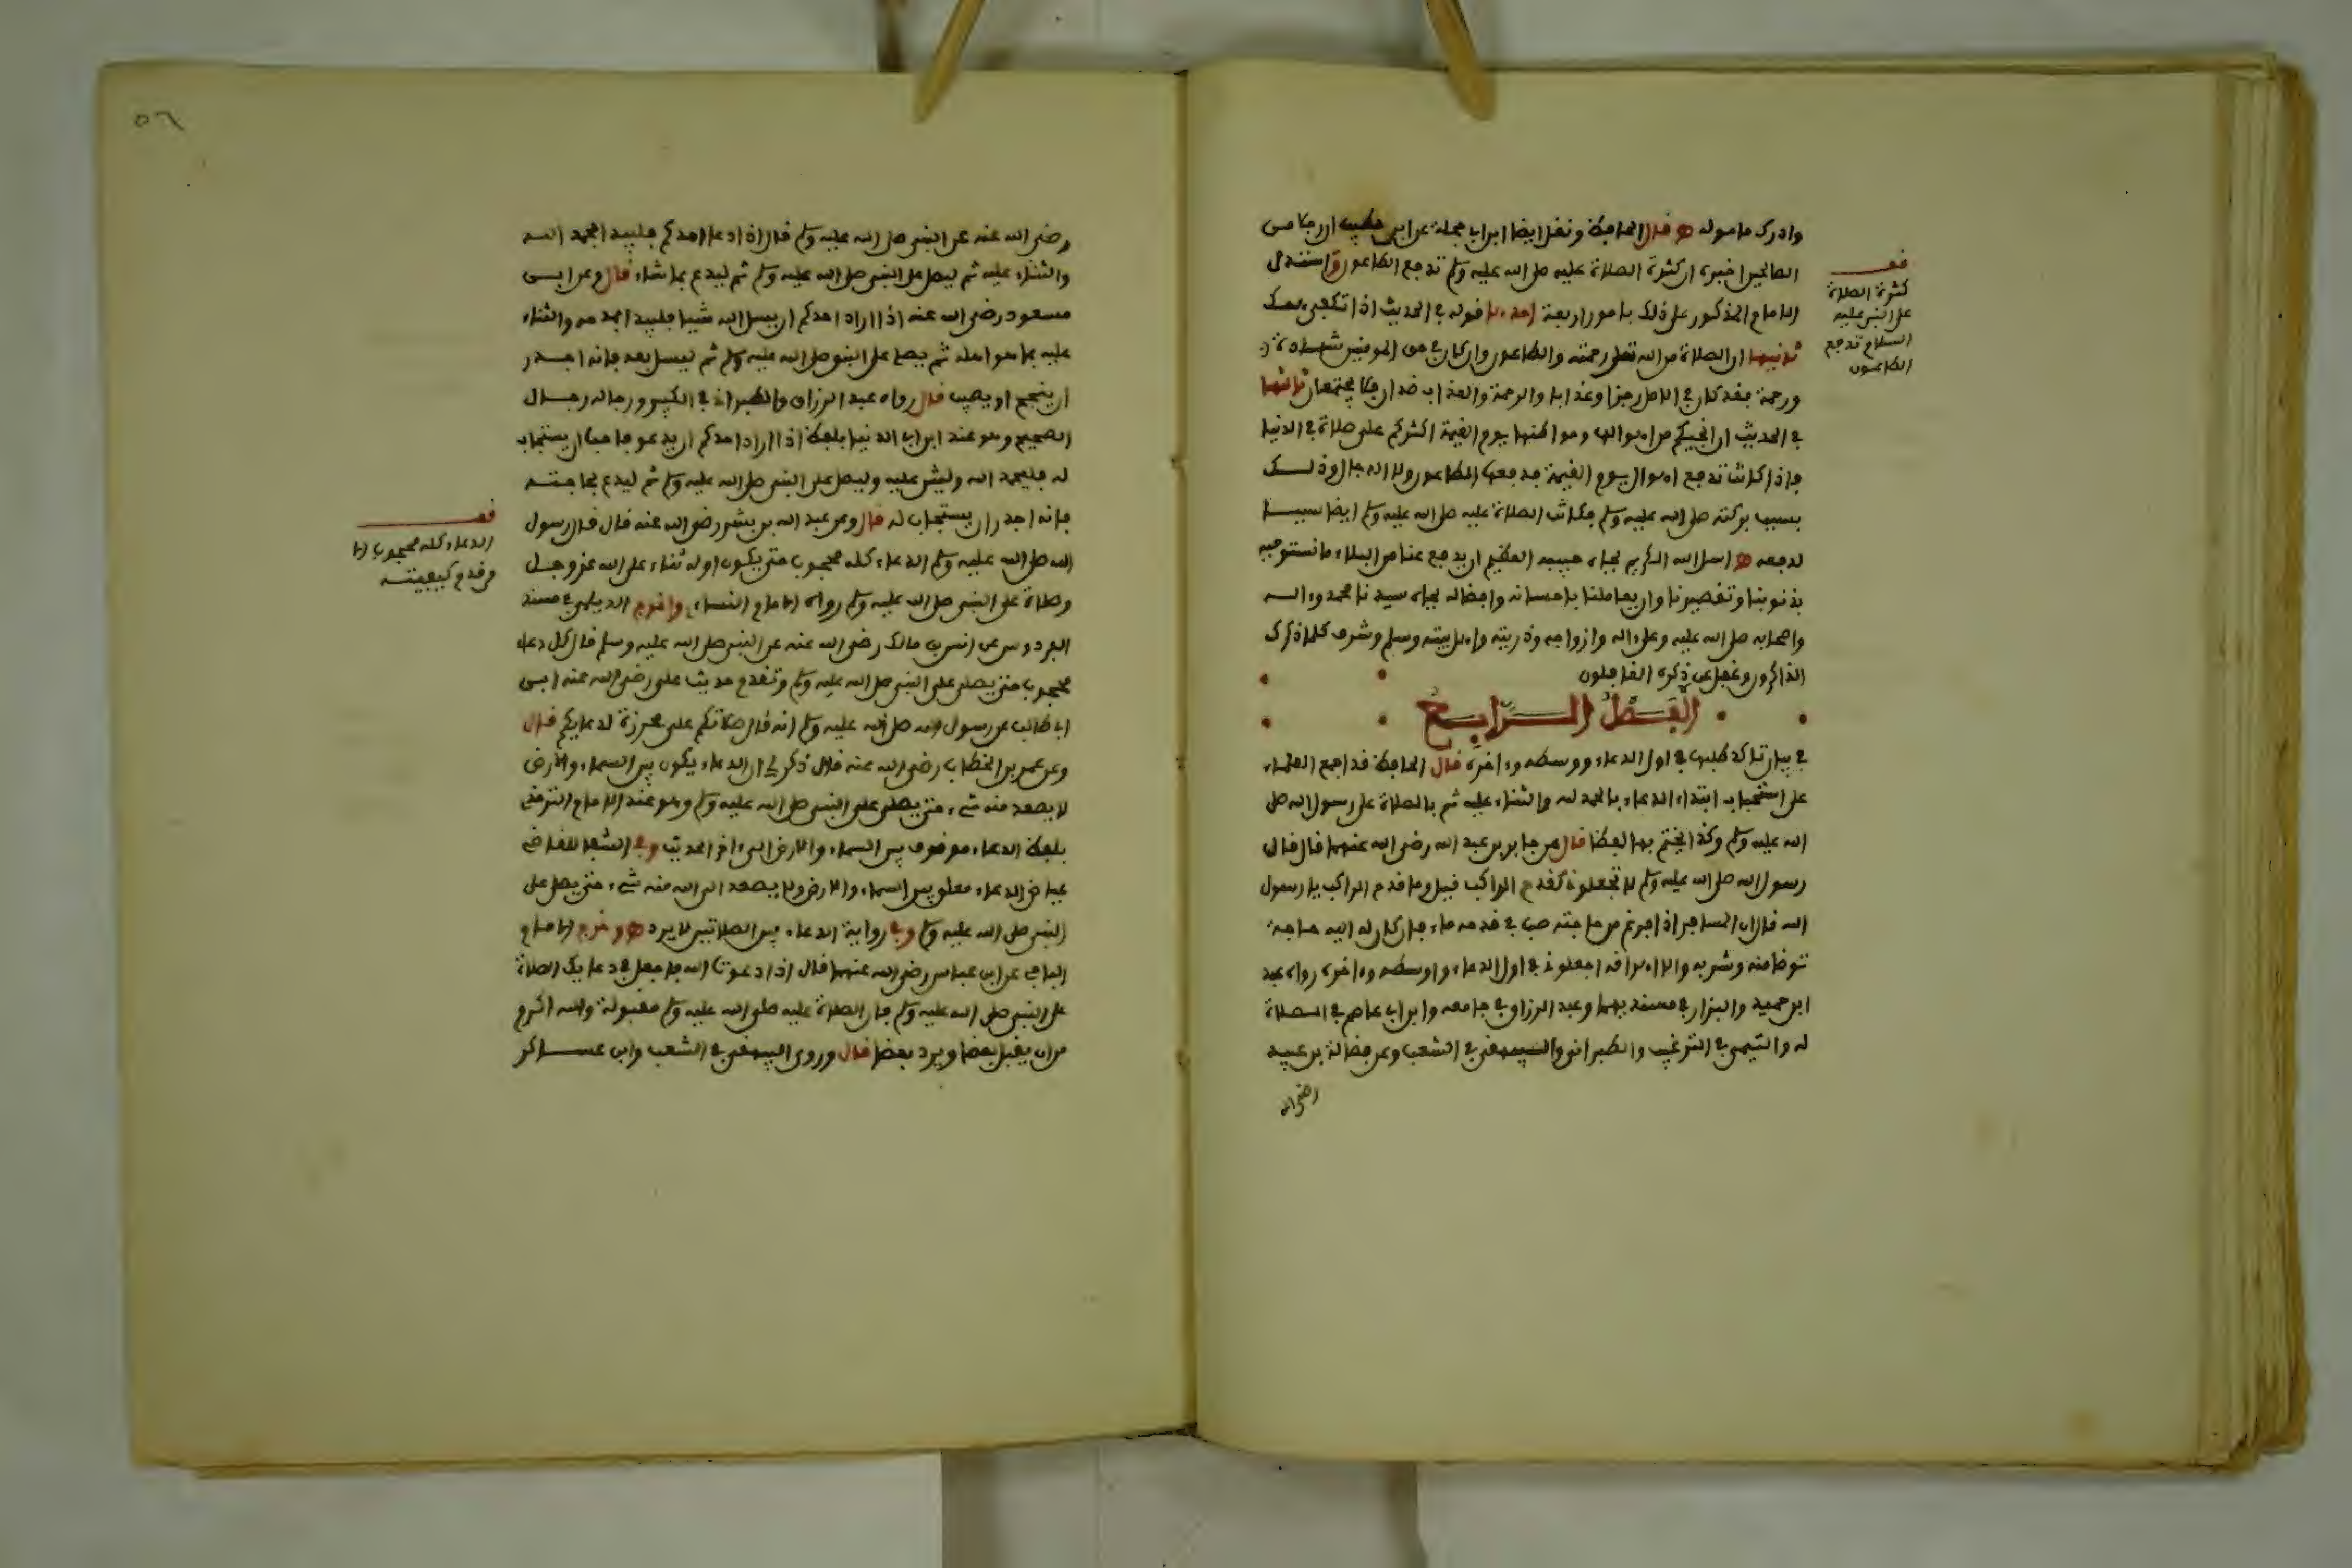 وادرك ماموله ه قال الحافظ ونقل ايضا ابن ابي حجلة عن ابن خطيب ان رجلا من
الصالحين اخبره ان كثرة الصلاة عليه صلى الله عليه وسلم تدفع الطاعون واستدل
الامام المذكور على ذلك بامور اربعة احدها قوله في الحديث اذا تكفى همك
ثانيها ان الصلاة من الله تعلى رحمته والطاعون وان كان في حق المومنين شهادة
ورحمة فقد كان في الاصل رجزا وعذابا والرحمة والعذاب ضدان فلا يجتمعان ثالثها
في الحديث ان انجيكم من اهوالها ومواطنها يوم القيمة اكثركم على صلاة في الدنيا
فاذا كانت تدفع اهوال يوم القيمة فدفعها الطاعون ذلك
بسببها بركته صلى الله عليه وسلم فكانت الصلاة عليه صلى الله عليه وسلم ايضا سببا
لدفعه ه اسل الله الكريم بجاه حبيبه العظيم ان يدفع عنا من البلاء ما نستوجبه
بذنوبنا وتقصيرنا وان يعاملنا باحسانه وافضاله بجاه سيدنا محمد وءاله
واصحابه صلى الله عليه وعلى ءاله وازواجه وذريته واهل بيته وسلم وشرف كلما ذكرك
الذاكرون وغفل عن ذكره الغافلون
الفصل الرابع
في بيان تاكد طلبها في اول الدعاء ووسطه وءاخره قال الحافظ قد اجمع العلماء
على استحباب ابتداء الدعاء بالحمد لله والثناء عليه ثم بالصلاة على رسول الله صلى
الله عليه وسلم وكذا يختم بها ايضا قال عن جابر بن عبد الله رضى الله عنهما قال قال
رسول الله صلى الله عليه وسلم لا تجعلونى كقدح الراكب قيل وما قدح الراكب يا رسول
الله قال ان المسافر اذا فرغ من حاجته صب في قدحه ماء فان كان له اليه حاجة
توضا منه وشربه والا اهراقه اجعلونى في اول الدعاء واوسطه وءاخره رواه عبد
ابن حميد والبزار في مسنديهما وعبد الرزاق في جامعه وابن ابي عاصم في الصلاة
له والتيمي في الترغيب والطبراني والبيهقي في الشعب وعن فضالة بن عبيد
رضى الله
قف
كثرة الصلاة
على النبي عليه
السلام تدفع
الطاعون
٥٦
رضى الله عنه عن النبي صلى الله عليه وسلم قال اذا دعا احدكم فليبدا بحمد الله
والثناء عليه ثم ليصل على النبي صلى الله عليه وسلم ثم ليدع بما شاء قال وعن ابن
مسعود رضى الله عنه اذا اراد احدكم ان يسل الله شيا فليبدا بمدحه والثناء
عليه بما هو اهله ثم يصل على النبي صلى الله عليه وسلم ثم ليسل بعد فانه اجدر
ان ينجح او يصيب قال رواه عبد الرزاق والطبراني في الكبير ورجاله رجال
الصحيح وهو عند ابن ابي الدنيا بلفظ اذا اراد احدكم ان يدعو فاحب ان يستجاب
له فليحمد الله وليثن عليه وليصل على النبي صلى الله عليه وسلم ثم ليدع بحاجته
فانه اجدر ان يستجاب له قال وعن عبد الله بن بشر رضى الله عنه قال قال رسول
الله صلى الله عليه وسلم الدعاء كله محجوب حتى يكون اوله ثناء على الله عز وجل
وصلاة على النبي صلى الله عليه وسلم رواه الامام النساءي واخرج الديلمي في مسند
الفردوس عن انس بن مالك رضى الله عنه عن النبي صلى الله عليه وسلم قال كل دعاء
محجوب حتى يصلى على النبي صلى الله عليه وسلم وتقدم حديث على رضى الله عنه ابن
ابي طالب عن رسول الله صلى الله عليه وسلم انه قال صلاتكم على محرزة لدعايكم قال
وعن عمر بن الخطاب رضى الله عنه قال ذكر لي ان الدعاء يكون بين السماء والارض
لا يصعد منه شيء حتى يصلى على النبي صلى الله عليه وسلم وهو عند الامام الترمذي
بلفظ الدعاء موقوف بين السماء والارض الى ءاخر الحديث وفي الشفا للقاضي
عياض الدعاء معلق بين السماء والارض ولا يصعد الى الله منه شيء حتى يصل على
النبي صلى الله عليه وسلم وفي رواية الدعاء بين الصلاتين لا يرد ه وخرج الامام
الباجي عن ابن عباس رضى الله عنهما قال اذا دعوت الله فاجعل في دعايك الصلاة
على النبي صلى الله عليه وسلم فان الصلاة عليه صلى الله عليه وسلم مقبولة والله اكرم
من ان يقبل بعضا ويرد بعضا قال وروى البيهقي في الشعب وابن عساكر
قف
الدعاء كله محجوب الا
من قدم كيفيته